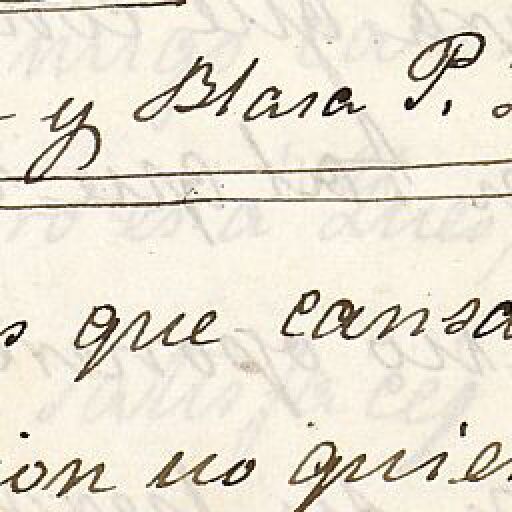 y Blasa P.
s que cansa
ion no quier